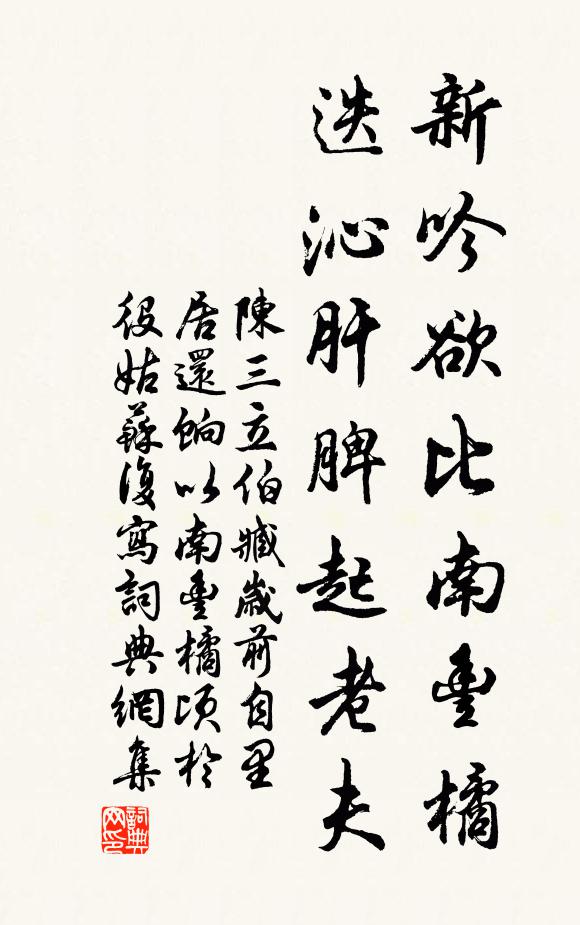 新吟欲比南豐橘
迭沁肝脾起老夫
陳三立伯臧歲前自里
居還餉以南豐橘頃於
役姑蘇復寫詞典網集
詞典
网印